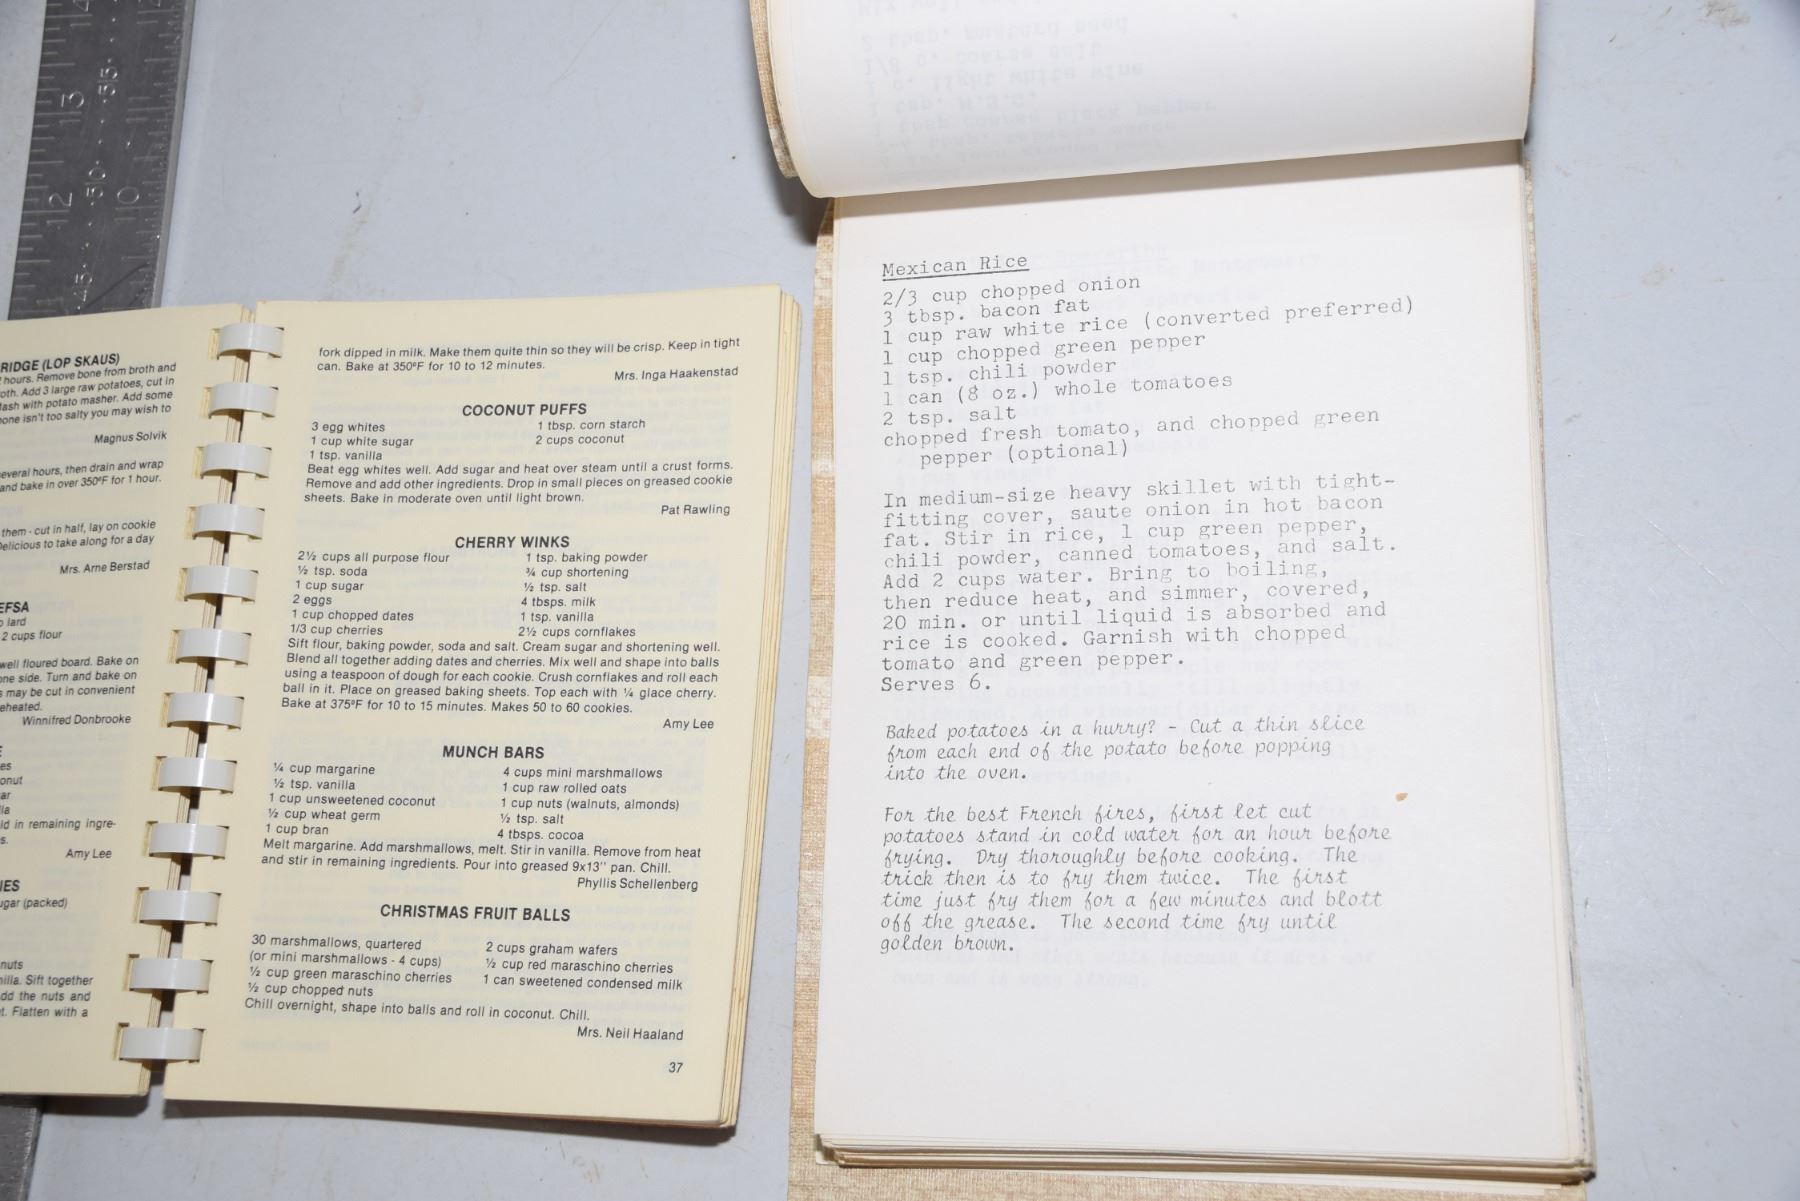 13
515
12
510
10
45
RIDGE (LOP SKAUS)
hours. Remove bone from broth and
oth. Add 3 large raw potatoes, cut in
ash with potato masher. Add some
one isn't too salty you may wish to
Magnus Solvik
several hours, then drain and wrap
and bake in over 350°F for 1 hour.
them - cut in half, lay on cookie
Delicious to take along for a day
Mrs. Arne Berstad
EFSA
lard
2 cups flour
well floured board. Bake on
one side. Turn and bake on
s may be cut in convenient
eheated.
Winnifred Donbrooke
E
es
onut
ar
lla
ld in remaining ingre-
s.
Amy Lee
IES
ugar (packed)
nuts
nilla. Sift together
dd the nuts and
t. Flatten with a
fork dipped in milk. Make them quite thin so they will be crisp. Keep in tight
can. Bake at 350°F for 10 to 12 minutes.
Mrs. Inga Haakenstad
COCONUT PUFFS
3 egg whites 1 tbsp. corn starch
1 cup white sugar 2 cups coconut
1 tsp. vanilla
Beat egg whites well. Add sugar and heat over steam until a crust forms.
Remove and add other ingredients. Drop in small pieces on greased cookie
sheets. Bake in moderate oven until light brown.
Pat Rawling
CHERRY WINKS
2½ cups all purpose flour 1 tsp. baking powder
½ tsp. soda ¾ cup shortening
1 cup sugar ½ tsp. salt
2 eggs 4 tbsps. milk
1 cup chopped dates 1 tsp. vanilla
1/3 cup cherries 2½ cups cornflakes
Sift flour, baking powder, soda and salt. Cream sugar and shortening well.
Blend all together adding dates and cherries. Mix well and shape into balls
using a teaspoon of dough for each cookie. Crush cornflakes and roll each
ball in it. Place on greased baking sheets. Top each with ¼ glace cherry.
Bake at 375°F for 10 to 15 minutes. Makes 50 to 60 cookies.
Amy Lee
MUNCH BARS
¼ cup margarine 4 cups mini marshmallows
½ tsp. vanilla 1 cup raw rolled oats
1 cup unsweetened coconut 1 cup nuts (walnuts, almonds)
½ cup wheat germ ½ tsp. salt
1 cup bran 4 tbsps. cocoa
Melt margarine. Add marshmallows, melt. Stir in vanilla. Remove from heat
and stir in remaining ingredients. Pour into greased 9x13" pan. Chill.
Phyllis Schellenberg
CHRISTMAS FRUIT BALLS
30 marshmallows, quartered 2 cups graham wafers
(or mini marshmallows - 4 cups) ½ cup red maraschino cherries
½ cup green maraschino cherries 1 can sweetened condensed milk
½ cup chopped nuts
Chill overnight, shape into balls and roll in coconut. Chill.
Mrs. Neil Haaland
37
Mexican Rice
2/3 cup chopped onion
3 tbsp. bacon fat
1 cup raw white rice (converted preferred)
1 cup chopped green pepper
1 tsp. chili powder
1 can (8 oz.) whole tomatoes
2 tsp. salt
chopped fresh tomato, and chopped green
pepper (optional)
In medium-size heavy skillet with tight-
fitting cover, saute onion in hot bacon
fat. Stir in rice, 1 cup green pepper,
chili powder, canned tomatoes, and salt.
Add 2 cups water. Bring to boiling,
then reduce heat, and simmer, covered,
20 min. or until liquid is absorbed and
rice is cooked. Garnish with chopped
tomato and green pepper.
Serves 6.
Baked potatoes in a hurry? - Cut a thin slice
from each end of the potato before popping
into the oven.
For the best French fires, first let cut
potatoes stand in cold water for an hour before
frying. Dry thoroughly before cooking. The
trick then is to fry them twice. The first
time just fry them for a few minutes and blott
off the grease. The second time fry until
golden brown.